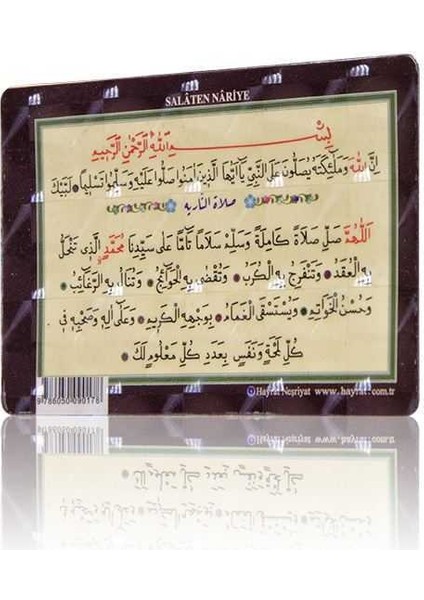 SALÂTEN NÂRİYE
بِسْمِ اللهِ الرَّحْمٰنِ الرَّحِيمِ
اِنَّ اللهَ وَمَلٰٓئِكَتَهُ يُصَلُّونَ عَلَى النَّبِيِّ يَٓا اَيُّهَا الَّذِينَ اٰمَنُوا صَلُّوا عَلَيْهِ وَسَلِّمُوا تَسْلِيمًا ۞ لَبَّيْكَ
صلاة النارية
اَللّٰهُمَّ صَلِّ صَلَاةً كَامِلَةً وَسَلِّمْ سَلَامًا تَامًّا عَلٰى سَيِّدِنَا مُحَمَّدٍ الَّذِي تَنْحَلُّ
بِهِ الْعُقَدُ ۞ وَتَنْفَرِجُ بِهِ الْكُرَبُ ۞ وَتُقْضٰى بِهِ الْحَوَٓائِجُ ۞ وَتُنَالُ بِهِ الرَّغَٓائِبُ ۞
وَحُسْنُ الْخَوَاتِمِ ۞ وَيُسْتَسْقَى الْغَمَامُ ۞ بِوَجْهِهِ الْكَرِيمِ ۞ وَعَلٰٓى اٰلِهِ وَصَحْبِهِ فِي
كُلِّ لَمْحَةٍ وَنَفَسٍ بِعَدَدِ كُلِّ مَعْلُومٍ لَكَ ۞
9 786050 090178
Hayrat Neşriyat www.hayrat.com.tr